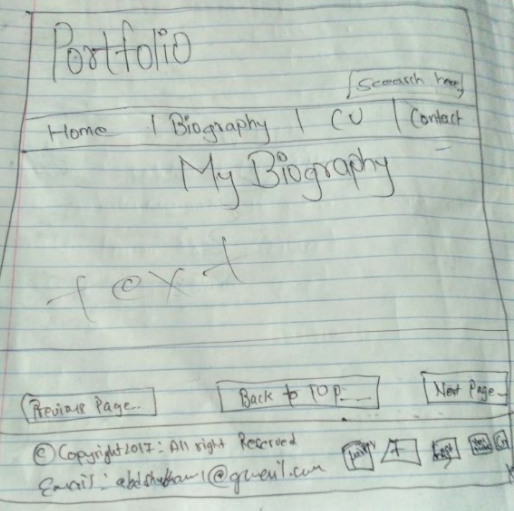 Portfolio
Search here
Home | Biography | CV | Contact
My Biography
text
Previous Page..
Back to TOP
Next Page
© Copyright 2017: All right Reserved
Email: